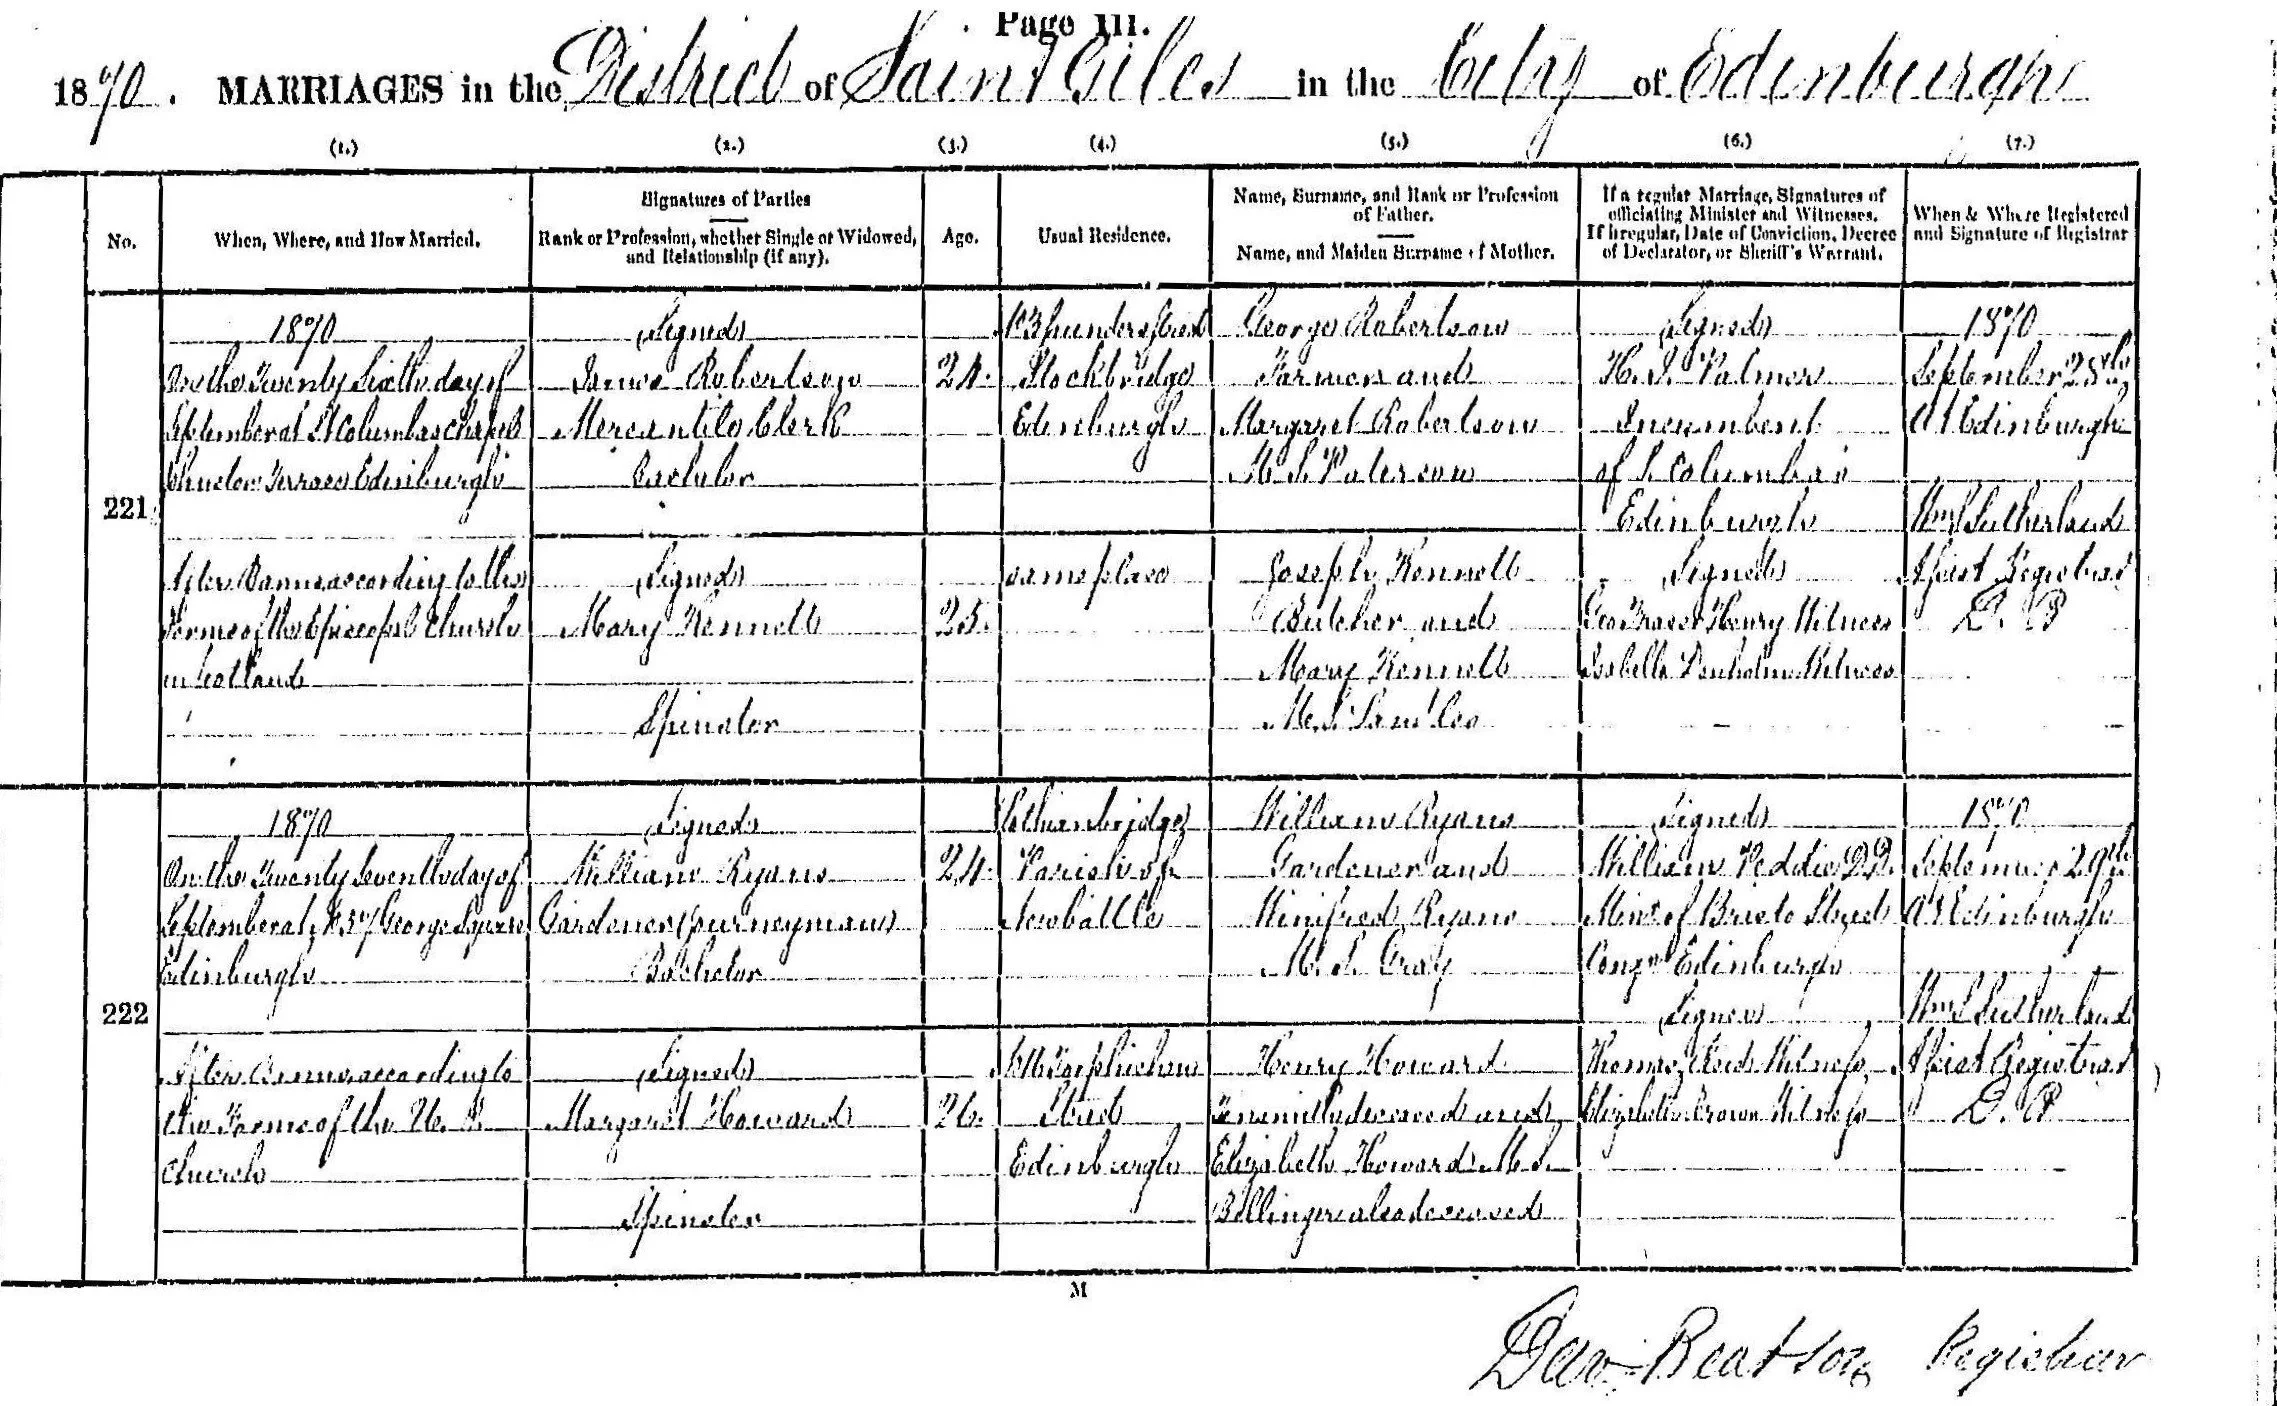 Page 111.
1870. MARRIAGES in the District of Saint Giles in the City of Edinburgh
(1.) (2.) (3.) (4.) (5.) (6.) (7.)
No.
When, Where, and How Married.
Signatures of Parties
Rank or Profession, whether Single or Widowed,
and Relationship (if any).
Age.
Usual Residence.
Name, Surname, and Rank or Profession
of Father.
Name, and Maiden Surname of Mother.
If a regular Marriage, Signatures of
officiating Minister and Witnesses.
If Irregular, Date of Conviction, Decree
of Declarator, or Sheriff's Warrant.
When & Where Registered
and Signature of Registrar
221
1870
On the Twenty Sixth day of
September at St Columbas Chapel
Terrace Edinburgh
After Banns according to the
Forms of the Episcopal Church
in Scotland
Signed
James Robertson
Mercantile Clerk
Bachelor
Signed
Mary Kennett
Spinster
24.
25.
Saunders Street
Stockbridge
Edinburgh
same place
George Robertson
Farmer and
Margaret Robertson
M.S. Paterson
Joseph Kennett
Butcher and
Mary Kennett
M.S.
Signed
Palmer
Incumbent
of S. Columba's
Edinburgh
Signed
Geo Fraser Henry Witness
Isabella Denholm Witness
1870
September 28th
At Edinburgh
Wm S Sutherland
Assist Registrar
D. B
222
1870
On the Twenty Seventh day of
September at No 57 George Square
Edinburgh
After Banns according to
the Forms of the U. P.
Church
Signed
William Ryans
Gardener (Journeyman)
Bachelor
Signed
Margaret Howard
Spinster
24.
26.
Lothianbridge
Parish of
Newbattle
Torphichen
Street
Edinburgh
William Ryans
Gardener and
Winifred Ryans
M.S. Gray
Henry Howard
deceased and
Elizabeth Howard M.S.
also deceased
Signed
William Peddie D.D.
Minr of Bristo Street
Congn Edinburgh
Signed
Thomas Witness
Elizabeth Brown Witness
1870
September 29th
At Edinburgh
Wm S Sutherland
Assist Registrar
D. B
M
Dav. Beatson Registrar